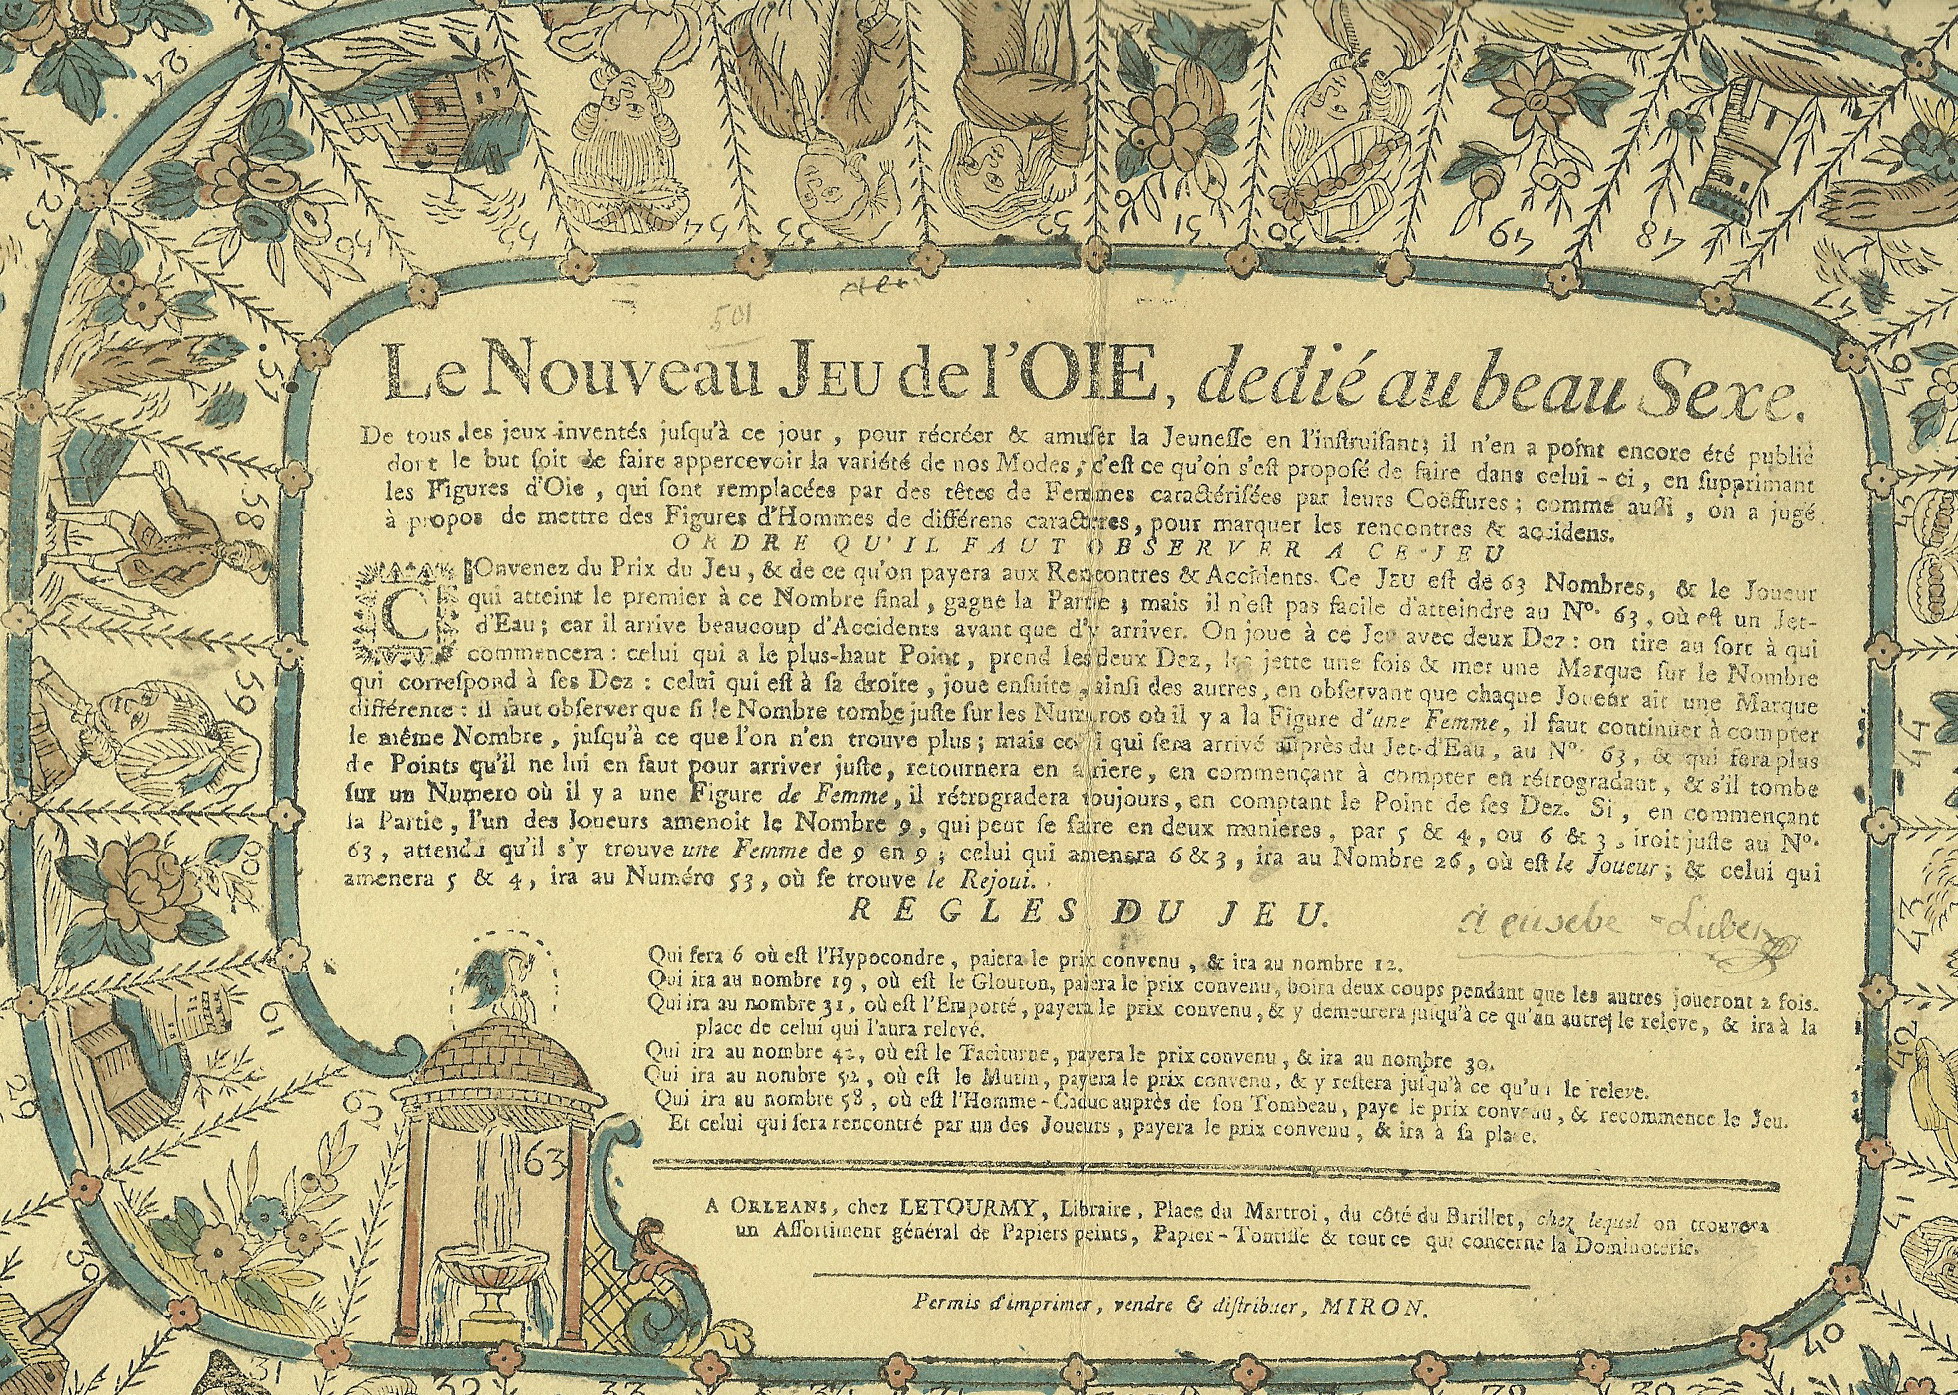 Le Nouveau JEU de l'OIE, dedié au beau Sexe.
De tous les jeux inventés juſqu'à ce jour, pour récréer & amuſer la Jeuneſſe en l'inſtruiſant; il n'en a point encore été publié
dort le but ſoit de faire appercevoir la variété de nos Modes, c'eſt ce qu'on s'eſt propoſé de faire dans celui-ci, en ſupprimant
les Figures d'Oie, qui ſont remplacées par des têtes de Femmes caractériſées par leurs Coëffures; comme auſſi, on a jugé
à propos de mettre des Figures d'Hommes de différens caracteres, pour marquer les rencontres & accidens.
ORDRE QU'IL FAUT OBSERVER A CE JEU
COnvenez du Prix du Jeu, & de ce qu'on payera aux Rencontres & Accidents. Ce JEU eſt de 63 Nombres, & le Joueur
qui atteint le premier à ce Nombre final, gagne la Partie; mais il n'eſt pas facile d'atteindre au Nº. 63, où eſt un Jet-
d'Eau; car il arrive beaucoup d'Accidents avant que d'y arriver. On joue à ce Jeu avec deux Dez: on tire au ſort à qui
commencera: celui qui a le plus-haut Point, prend les deux Dez, les jette une fois & met une Marque ſur le Nombre
qui correſpond à ſes Dez: celui qui eſt à ſa droite, joue enſuite, ainſi des autres, en obſervant que chaque Joueur ait une Marque
différente: il faut obſerver que ſi le Nombre tombe juſte ſur les Numéros où il y a la Figure d'une Femme, il faut continuer à compter
le même Nombre, juſqu'à ce que l'on n'en trouve plus; mais celui qui ſera arrivé auprès du Jet-d'Eau, au Nº. 63, & qui fera plus
de Points qu'il ne lui en faut pour arriver juſte, retournera en arriere, en commençant à compter en rétrogradant, & s'il tombe
ſur un Numero où il y a une Figure de Femme, il rétrogradera toujours, en comptant le Point de ſes Dez. Si, en commençant
la Partie, l'un des Joueurs amenoit le Nombre 9, qui peut ſe faire en deux manières, par 5 & 4, ou 6 & 3, iroit juſte au Nº.
63, attendu qu'il s'y trouve une Femme de 9 en 9; celui qui amenera 6 & 3, ira au Nombre 26, où eſt le Joueur; & celui qui
amenera 5 & 4, ira au Numéro 53, où ſe trouve le Rejoui.
REGLES DU JEU.
à eusebe
Qui fera 6 où eſt l'Hypocondre, paiera le prix convenu, & ira au nombre 12.
Qui ira au nombre 19, où eſt le Glouton, paiera le prix convenu, boira deux coups pendant que les autres joueront 2 fois.
Qui ira au nombre 31, où eſt l'Emporté, payera le prix convenu, & y demeurera juſqu'à ce qu'un autre le releve, & ira à la
place de celui qui l'aura relevé.
Qui ira au nombre 42, où eſt le Taciturne, payera le prix convenu, & ira au nombre 30.
Qui ira au nombre 52, où eſt le Mutin, payera le prix convenu, & y reſtera juſqu'à ce qu'un le releve.
Qui ira au nombre 58, où eſt l'Homme-Caduc auprès de ſon Tombeau, paye le prix convenu, & recommence le Jeu.
Et celui qui ſera rencontré par un des Joueurs, payera le prix convenu, & ira à ſa place.
A ORLEANS, chez LETOURMY, Libraire, Place du Martroi, du côté du Barillet, chez lequel on trouvera
un Aſſortiment général de Papiers peints, Papier-Tontiſſe & tout ce qui concerne la Dominoterie.
Permis d'imprimer, vendre & diſtribuer, MIRON.
501
24
25
29
30
31
32
33
38
39
40
41
42
43
44
45
46
48
49
50
51
52
53
54
55
56
57
58
59
60
61
62
63